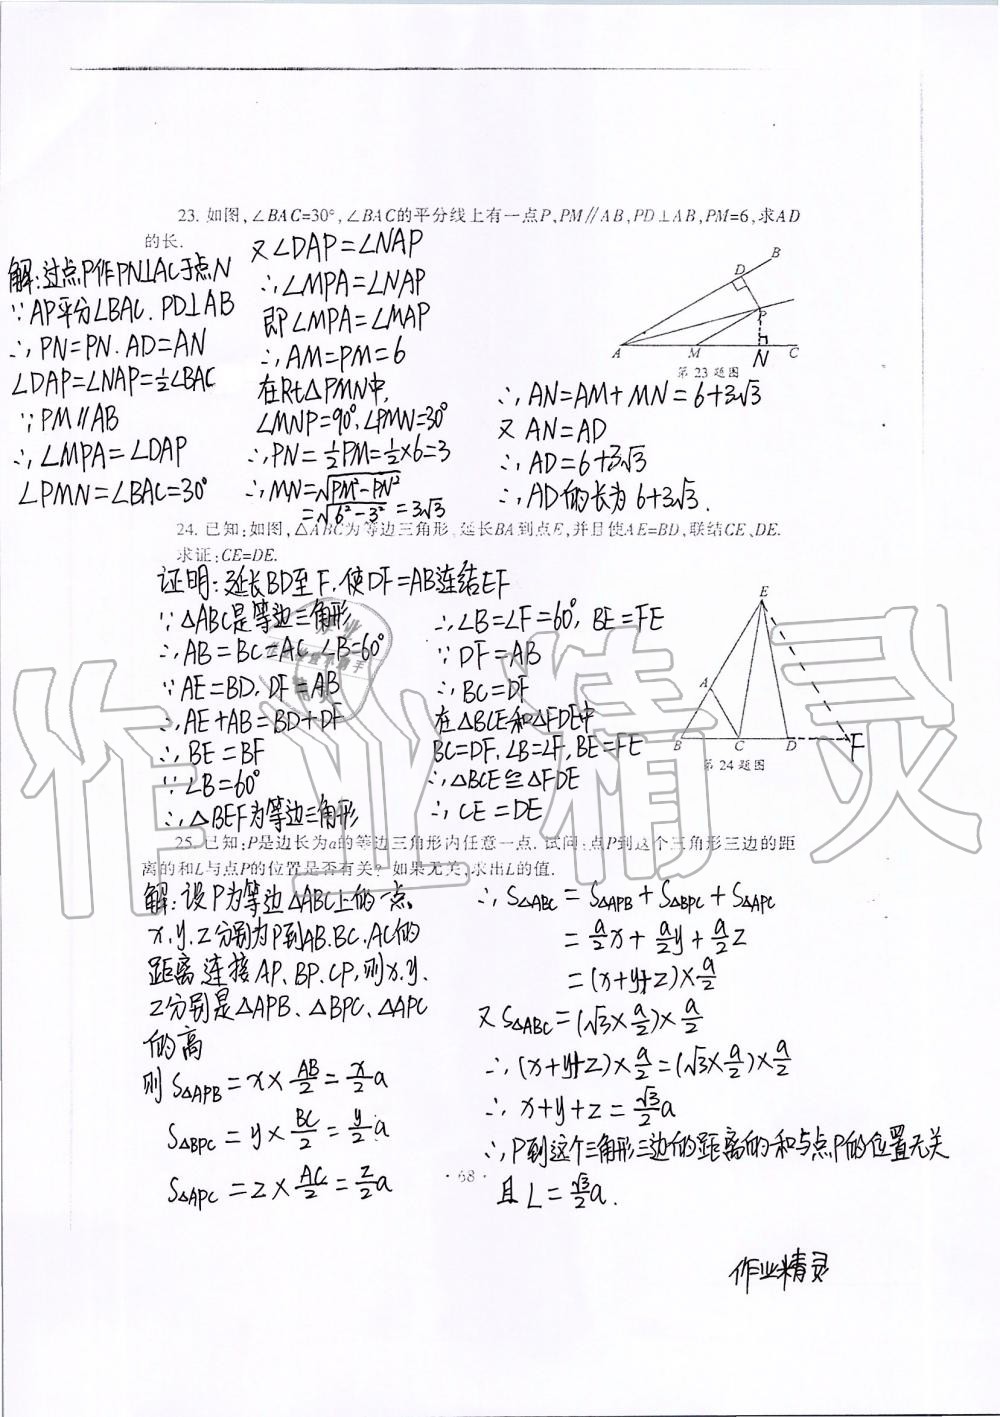 23. 如图,∠BAC=30°,∠BAC的平分线上有一点P,PM∥AB,PD⊥AB,PM=6,求AD
的长.
解:过点P作PN⊥AC于点N
∵AP平分∠BAC.PD⊥AB
∴PN=PN.AD=AN
∠DAP=∠NAP=½∠BAC
∵PM∥AB
∴∠MPA=∠DAP
∠PMN=∠BAC=30°
又∠DAP=∠NAP
∴∠MPA=∠NAP
即∠MPA=∠MAP
∴AM=PM=6
在Rt△PMN中,
∠MNP=90°,∠PMN=30°
∴PN=½PM=½×6=3
∴MN=√PM²-PN²
=√6²-3²=3√3
B
D
P
A
M
N
C
第23题图
∴AN=AM+MN=6+3√3
又AN=AD
∴AD=6+3√3
∴AD的长为6+3√3.
24. 已知:如图,△ABC为等边三角形,延长BA到点E,并且使AE=BD,联结CE、DE.
求证:CE=DE.
证明:延长BD至F,使DF=AB连结EF
∵△ABC是等边三角形
∴AB=BC=AC ∠B=60°
∵AE=BD,DF=AB
∴AE+AB=BD+DF
∴BE=BF
∵∠B=60°
∴△BEF为等边三角形
∴∠B=∠F=60°,BE=FE
∵DF=AB
∴BC=DF
在△BCE和△FDE中
BC=DF,∠B=∠F,BE=FE
∴△BCE≌△FDE
∴CE=DE
E
A
B
C
D
F
第24题图
作业精灵
25. 已知:P是边长为a的等边三角形内任意一点.试问:点P到这个三角形三边的距
离的和L与点P的位置是否有关?如果无关,求出L的值.
解:设P为等边△ABC上的一点,
x,y,z分别为P到AB.BC.AC的
距离 连接AP、BP、CP,则x.y.
z分别是△APB、△BPC、△APC
的高
则S△APB=x×AB/2=x/2a
S△BPC=y×BC/2=y/2a
S△APC=z×AC/2=z/2a
∴S△ABC=S△APB+S△BPC+S△APC
=a/2x+a/2y+a/2z
=(x+y+z)×a/2
又S△ABC=(√3×a/2)×a/2
∴(x+y+z)×a/2=(√3×a/2)×a/2
∴x+y+z=√3/2a
∴P到这个三角形三边的距离的和与点P的位置无关
且L=√3/2a.
· 68 ·
作业精灵